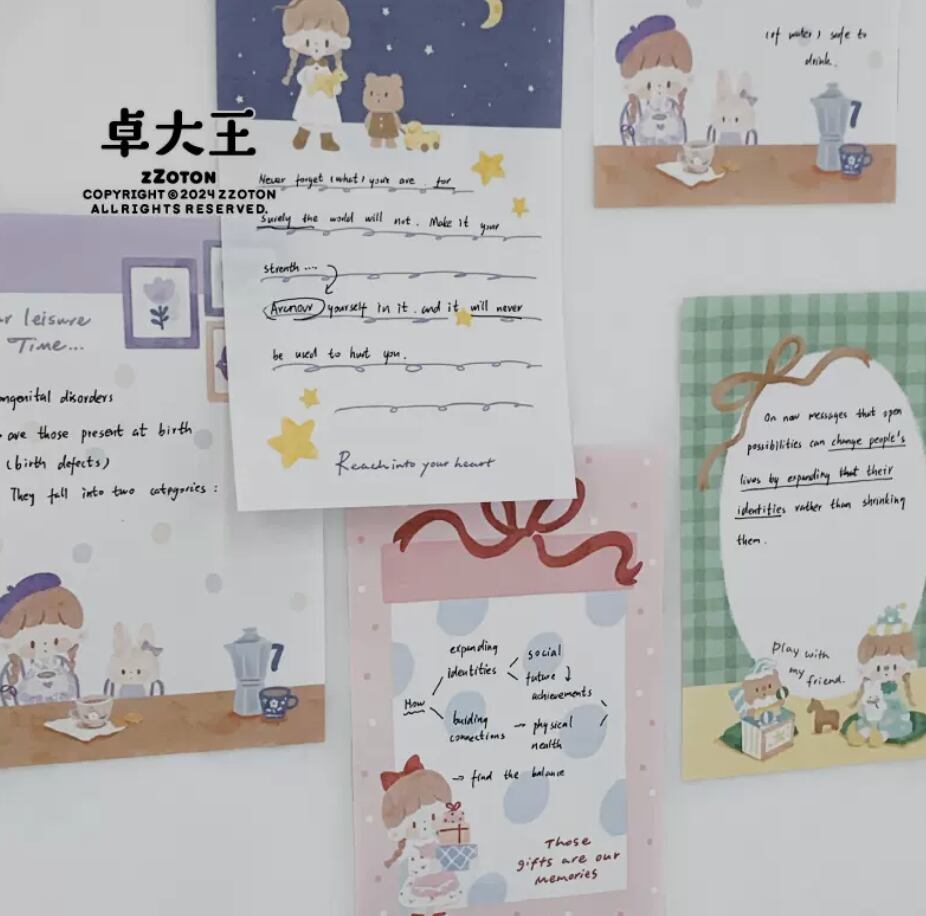 卓大王
zZOTON
COPYRIGHT © 2024 ZZOTON
ALL RIGHTS RESERVED.
Never forget (what) you're are for
Surely the world will not. Make it your
strenth ....
Armour yourself in it. and it will never
be used to hurt you.
Reach into your heart
(of water) safe to
drink.
r leisure
Time...
ngenital disorders
are those present at birth
(birth defects)
They fall into two catpgories :
On now messages that open
possibilities can change people's
lives by expanding that their
identities rather than shrinking
them.
Play with
my friend.
How
expanding
identities
social
future
achievements
building
connections → physical
health
→ find the balance
Those
gifts are our
Memories